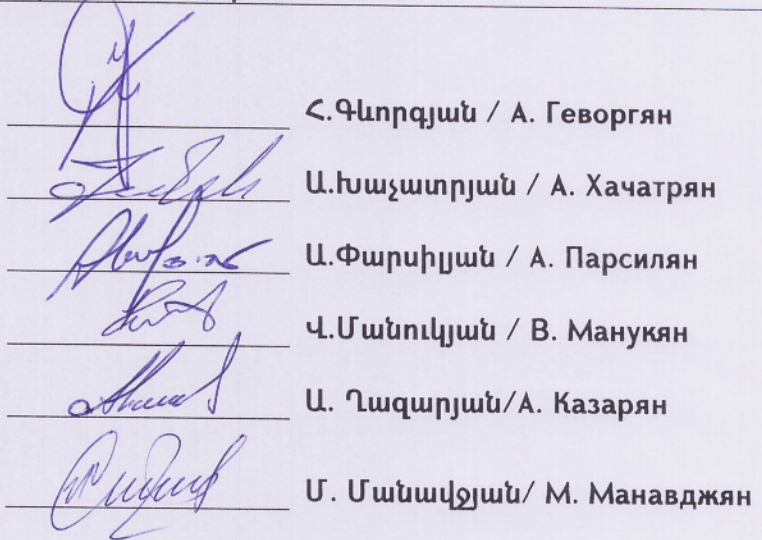 Հ.Գևորգյան / А. Геворгян
Ա.Խաչատրյան / А. Хачатрян
Ա.Փարսիլյան / А. Парсилян
Վ.Մանուկյան / В. Манукян
Ա. Ղազարյան/А. Казарян
Մ. Մանավջյան/ М. Манавджян